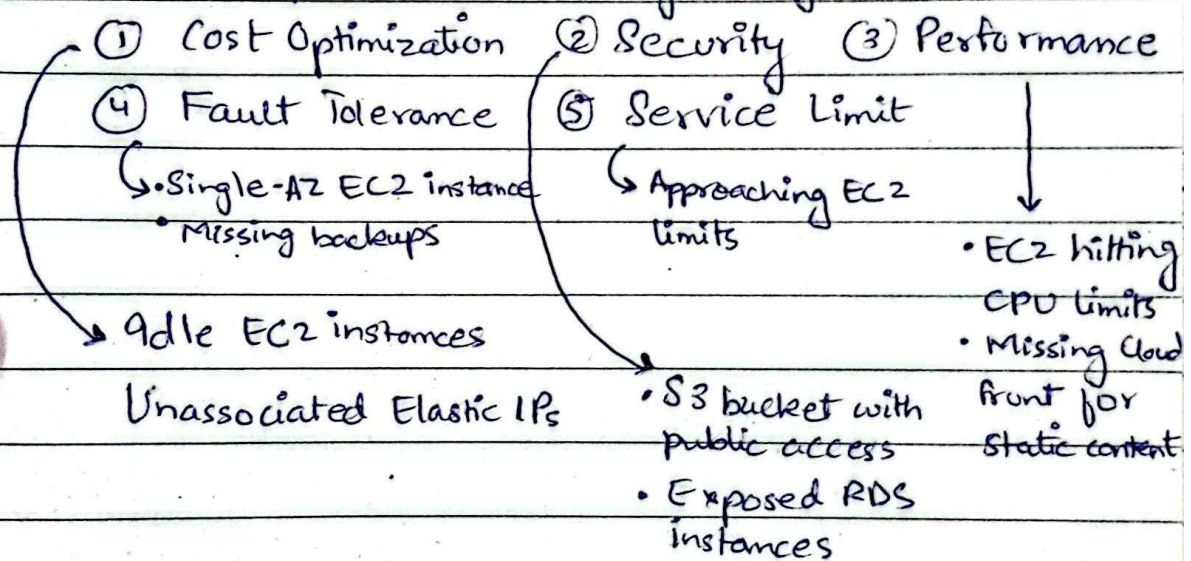 ① Cost Optimization ② Security ③ Performance
④ Fault Tolerance ⑤ Service Limit
• Single-AZ EC2 instance
• Missing backups
Approaching EC2
limits
• EC2 hitting
CPU limits
• Missing Cloud
front for
static content
Idle EC2 instances
Unassociated Elastic IPs
• S3 bucket with
public access
• Exposed RDS
instances